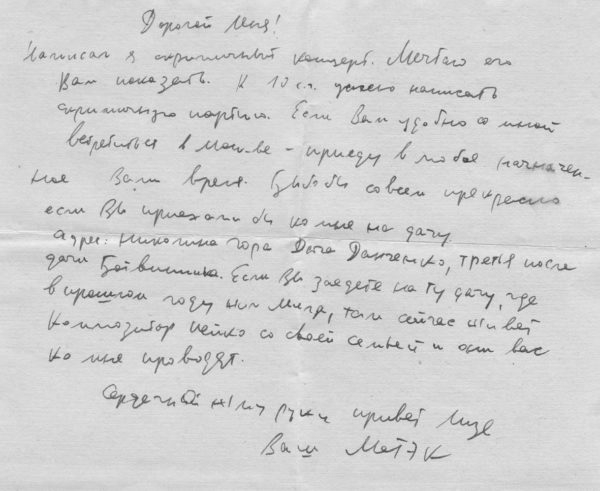 Дорогой Лёня!
Написал я скрипичный концерт. Мечтаю его
Вам показать. К 10 с.м. успею написать
скрипичную партию. Если Вам удобно со мной
встретиться в Москве – приеду в любое назначен-
ное Вами время. Было бы совсем прекрасно
если Вы приехали бы ко мне на дачу.
Адрес: Николина гора Дача Данченко, третья после
дачи Ботвинника. Если Вы заедете на ту дачу, где
в прошлом году жил Мига, там сейчас живёт
Композитор Пейко со своей семьей и они вас
ко мне проводят.
Сердечный жму руки привет Лизе
Ваш МЕТЭК